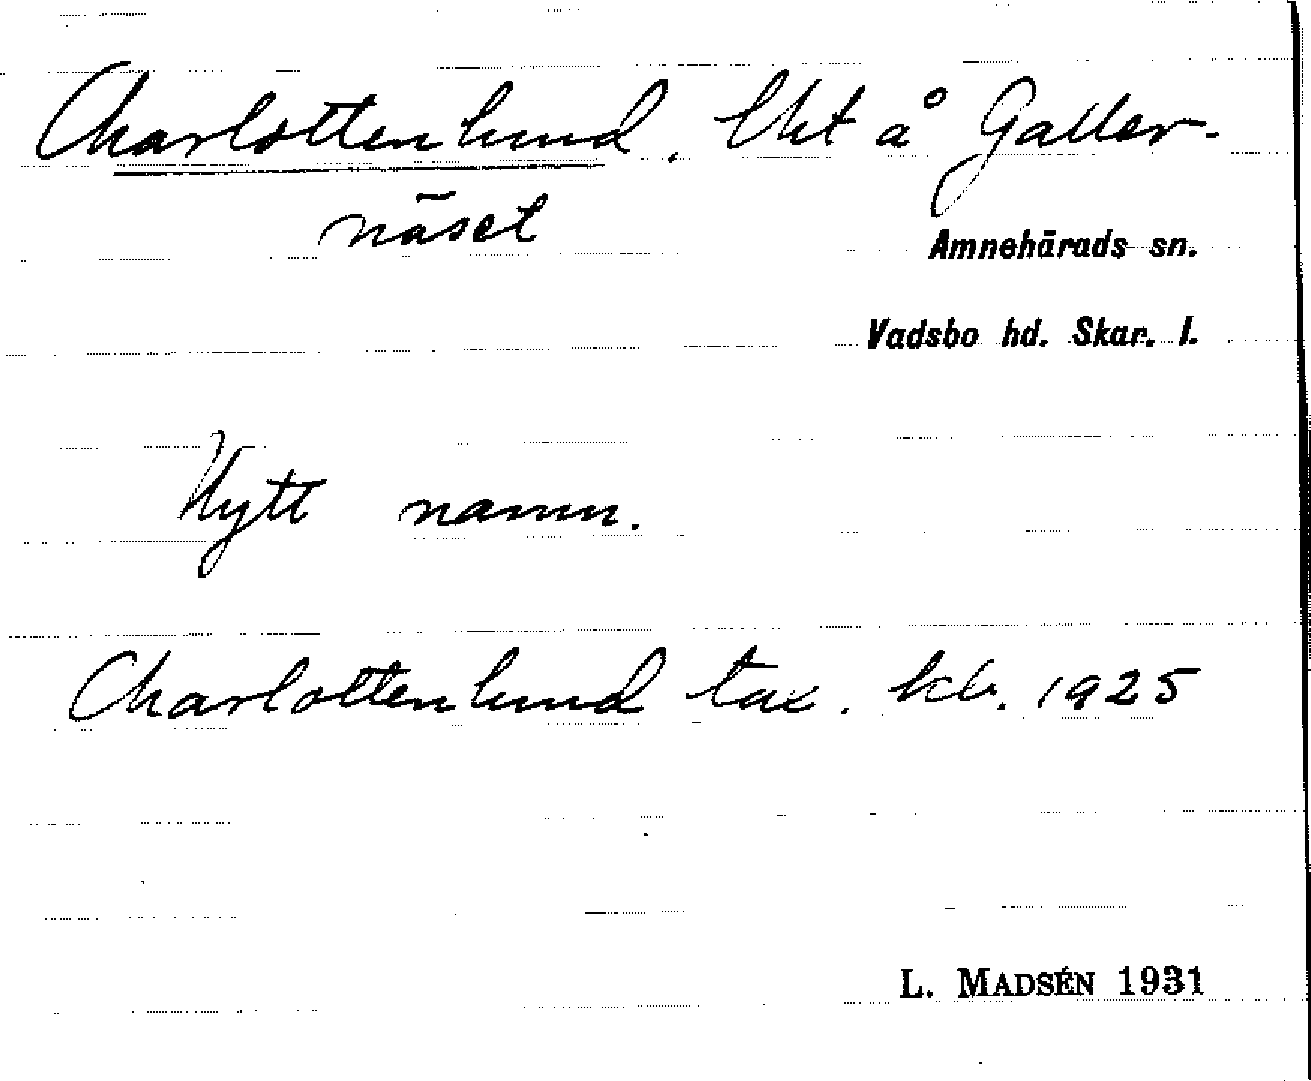 Charlottenlund. Uht å Galler-
näset
Amnehärads sn.
Vadsbo hd. Skar. l.
Nytt namn.
Charlottenlund tax. kb. 1925
L. MADSÉN 1931